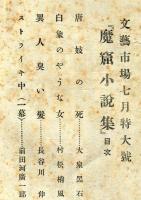 文藝市場七月特大號
『魔窟小説集』目次
唐妓の死 大泉黒石
白象のやうな女 村松梢風
異人臭い髮 長谷川伸
ストライキ中(一幕) 前田河廣一郎